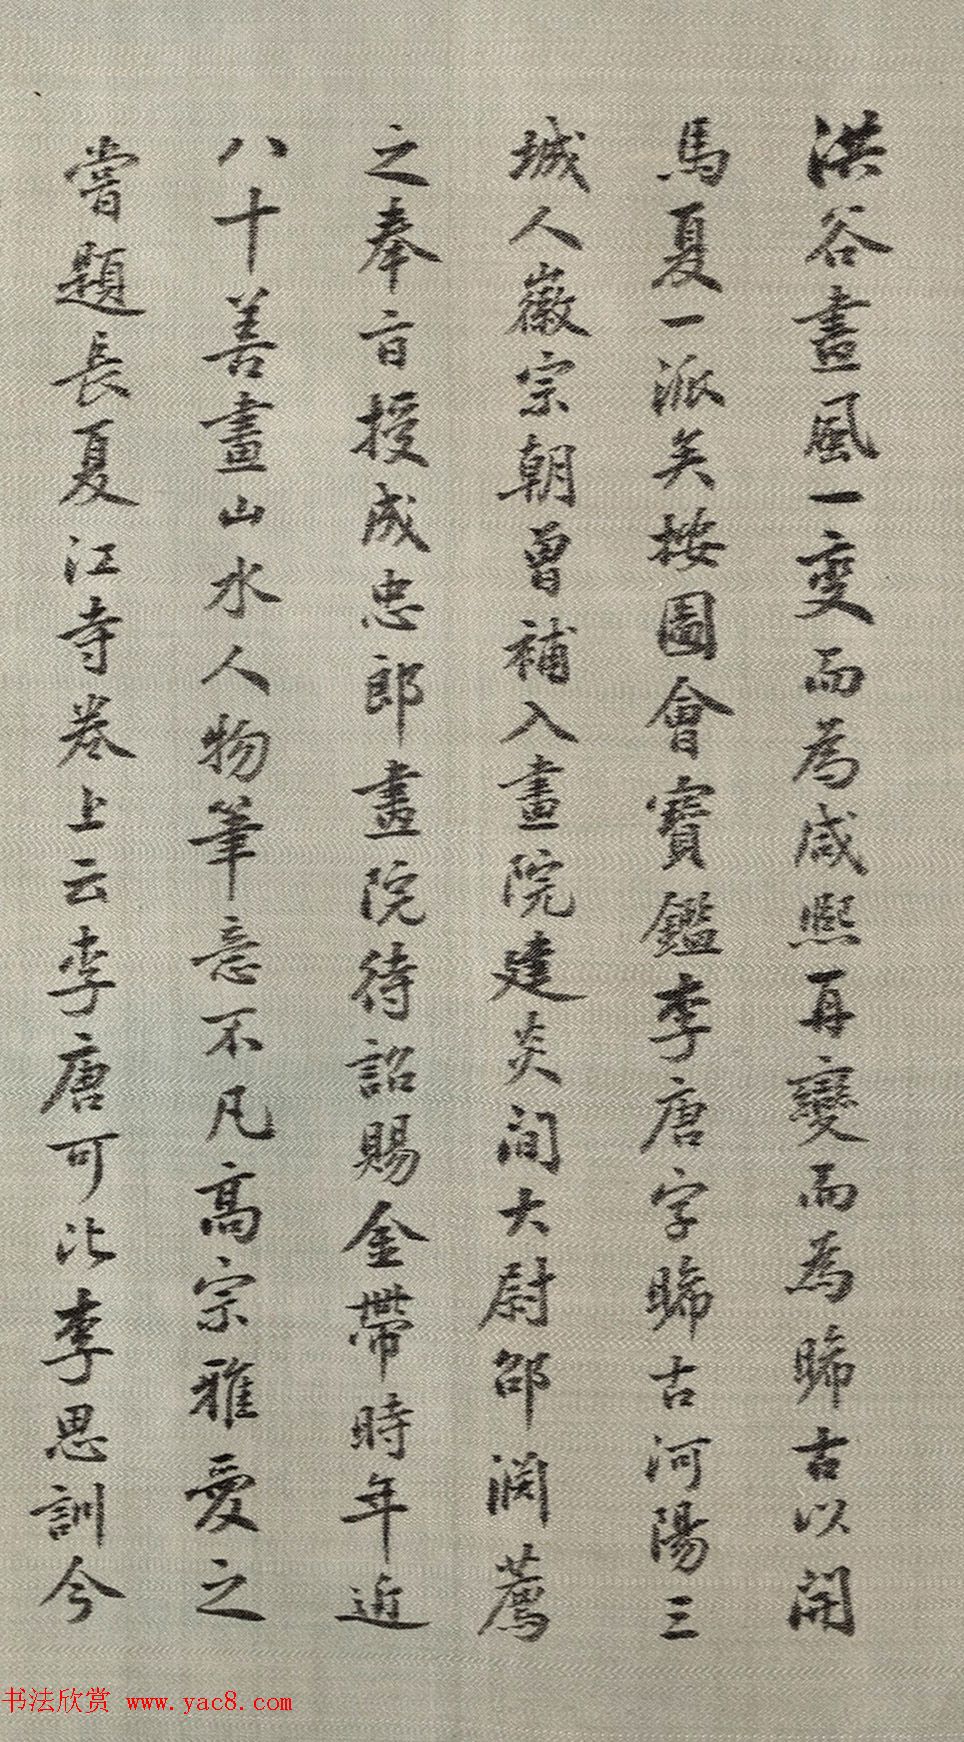 洪谷畫風一變而為咸熙再變而為晞古以開
馬夏一派矣按圖會寶鑑李唐字晞古河陽三
城人徽宗朝曾補入畫院建炎間太尉邵淵薦
之奉旨授成忠郎畫院待詔賜金帶時年近
八十善畫山水人物筆意不凡高宗雅愛之
嘗題長夏江寺卷上云李唐可比李思訓今
书法欣赏 www.yac8.com